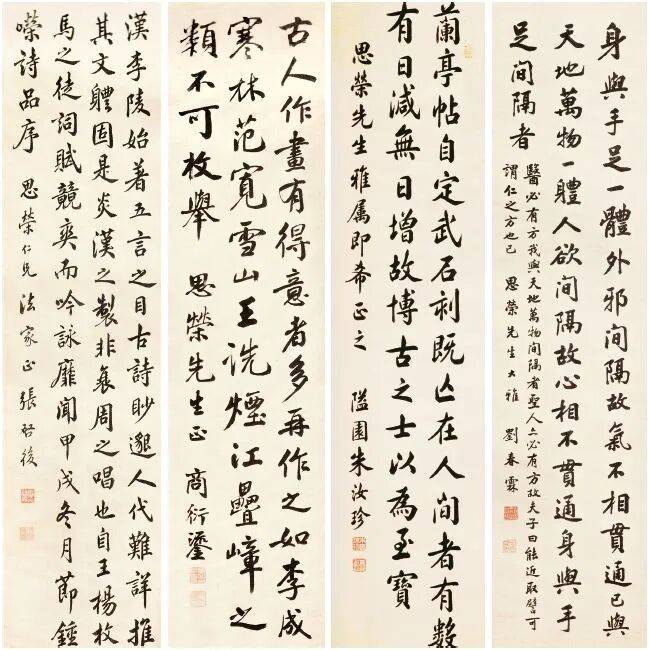 身與手足一體外邪間隔故氣不相貫通已與
天地萬物一體人欲間隔故心相不貫通身與手
足間隔者
醫必有方我與天地萬物間隔者聖人亦必有方故夫子曰能近取譬可
謂仁之方也已 思榮先生大雅 劉春霖
蘭亭帖自定武石刻既亾在人間者有數
有日減無日增故博古之士以為至寶
思榮先生雅属即希正之 隘園朱汝珍
古人作畫有得意者多再作之如李成
寒林范寬雪山王詵煙江疊嶂之
類不可枚舉 思榮先生正 商衍鎏
漢李陵始著五言之目古詩眇邈人代難詳推
其文體固是炎漢之製非衰周之唱也自王楊枚
馬之徒詞賦競爽而吟詠靡聞甲戌冬月節鍾
嶸詩品序 思榮仁兄法家正 張啓後